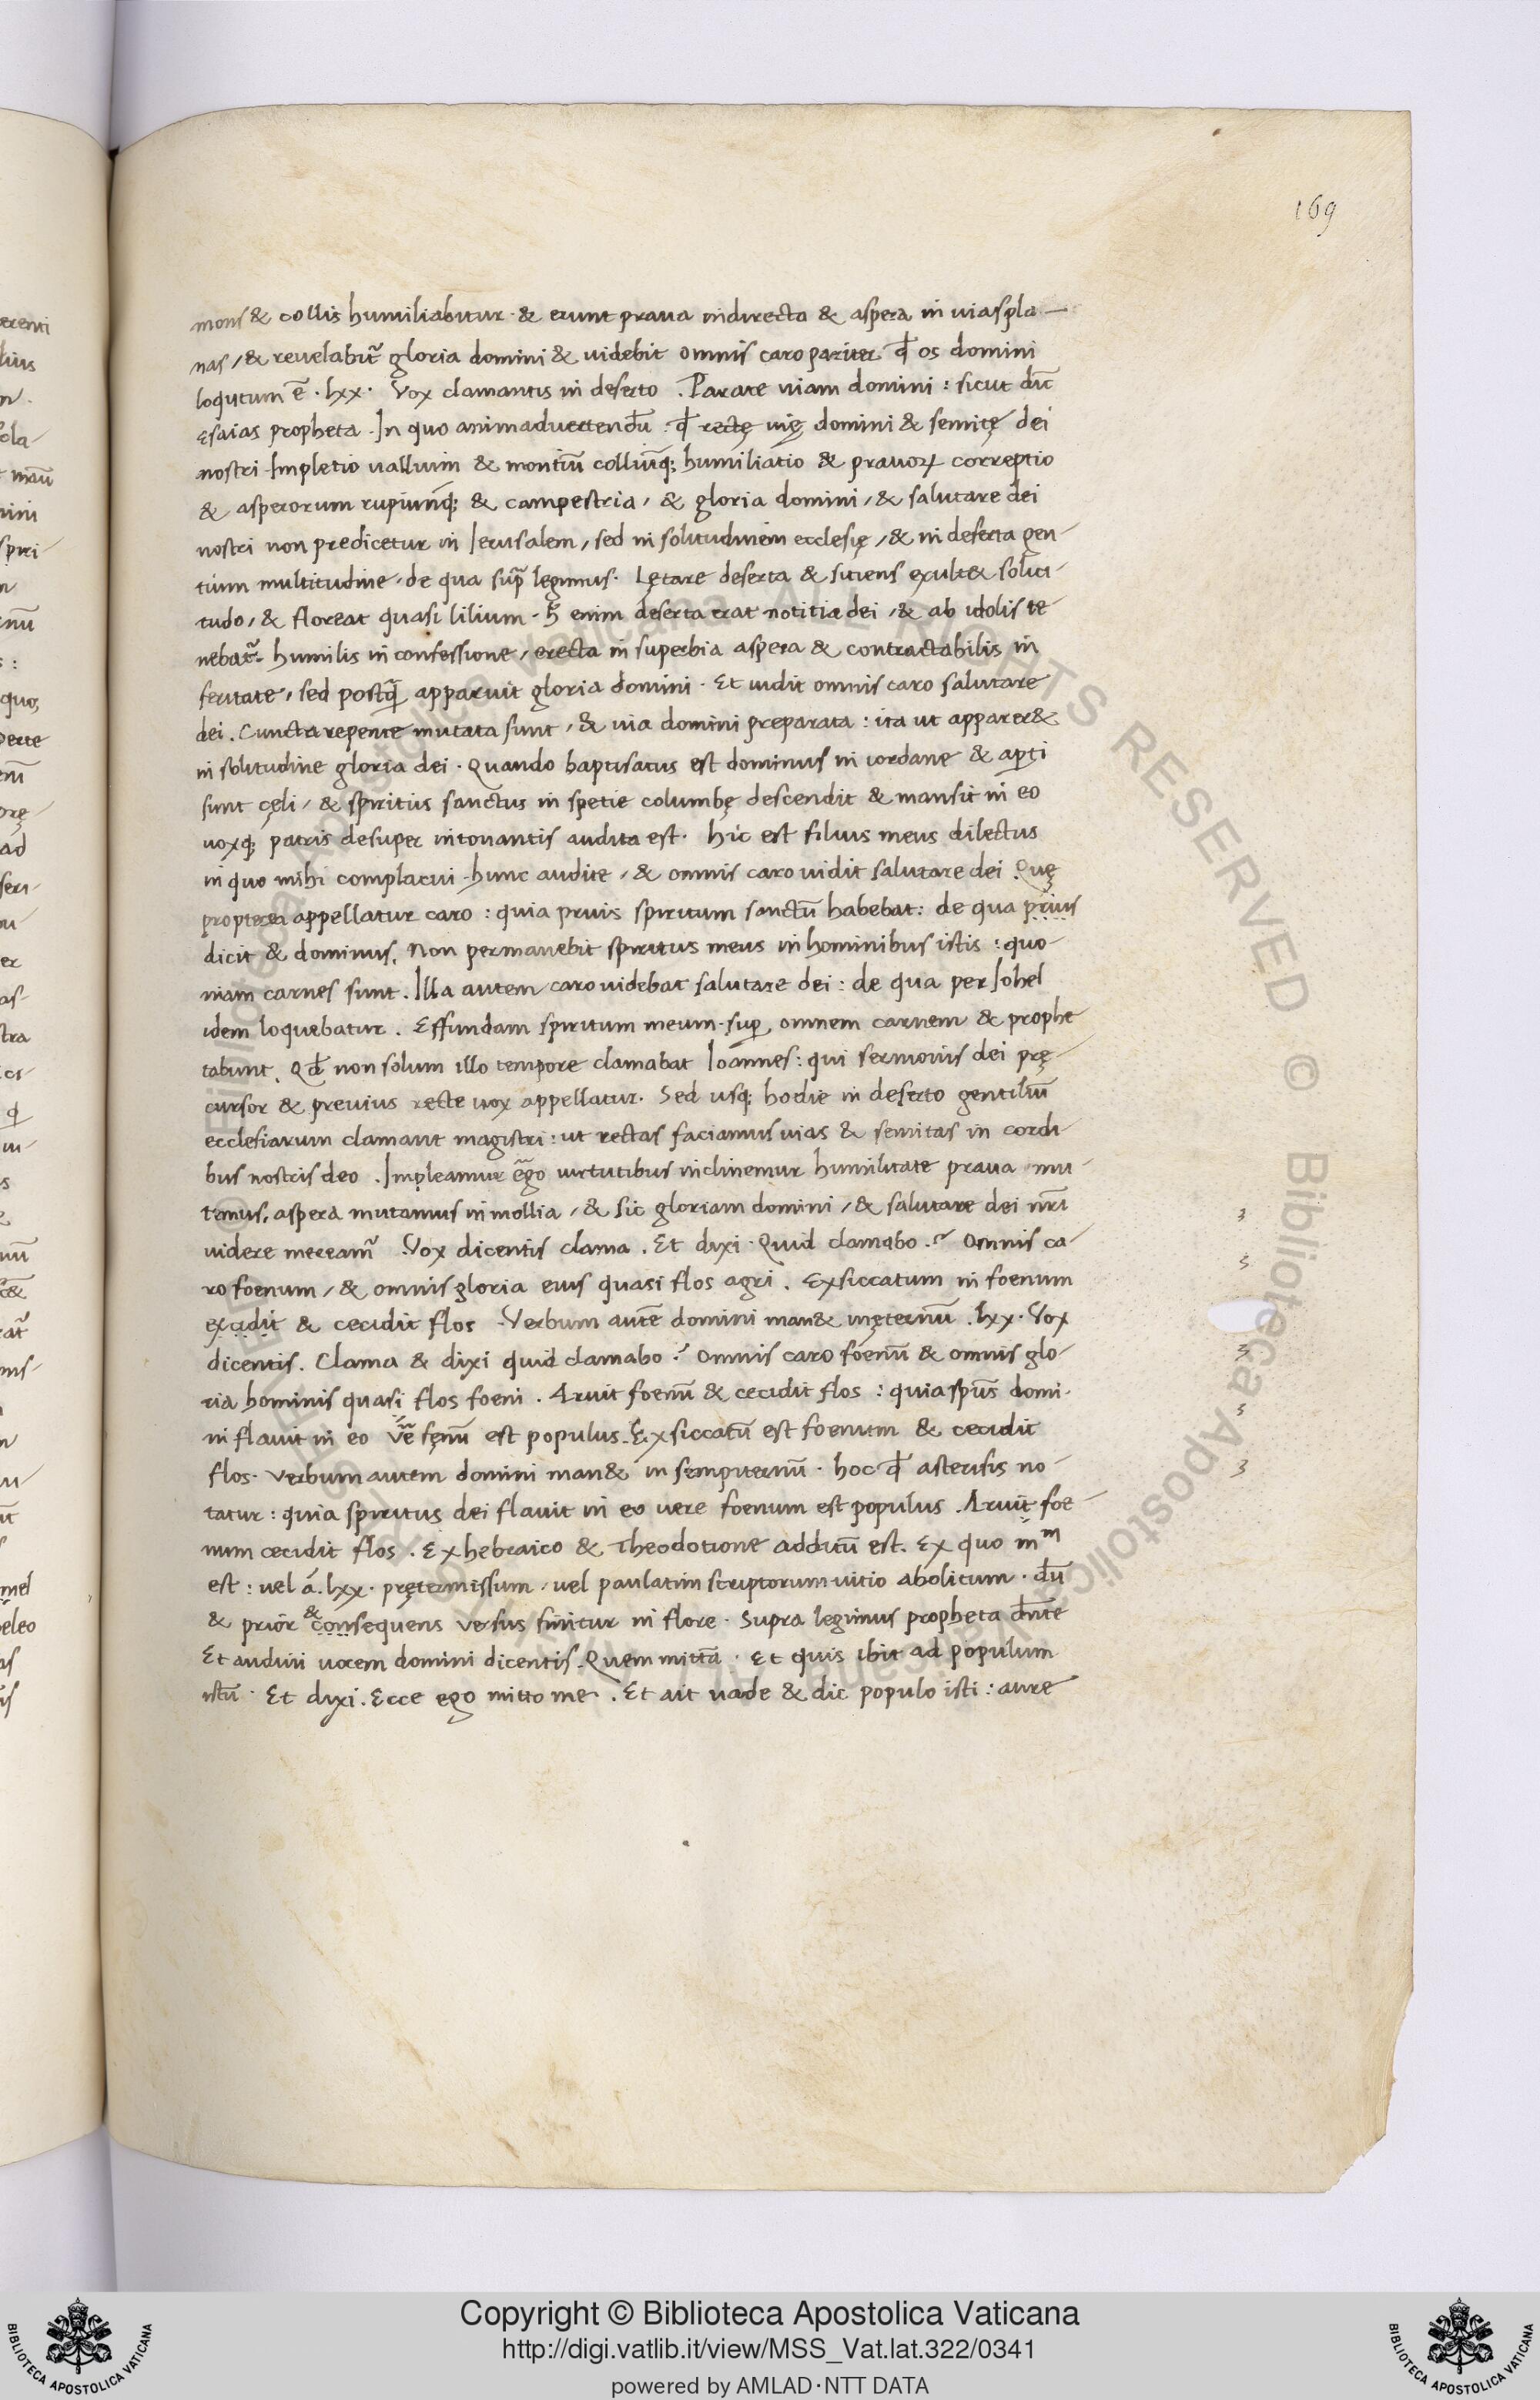 169
mons & collis humiliabitur · & erunt praua indirecta & aspera in uias pla—
nas, & reuelabit̃ gloria domini & uidebit omnis caro pariter qđ os domini
loqutum ẽ · lxx · Vox clamantis in deserto . Parate uiam domini : sicut dic̃
Esaias propheta . In quo animaduertendũ : qđ rectę uię domini & semitę dei
nostri Impletio uallium & montiũ colliũq; humiliatio & prauoꝝ correptio
& asperorum rupiumq; & campestria, & gloria domini, & salutare dei
nostri non predicetur in Ierusalem, sed in solitudinem ecclesię, & in deserta gen-
tium multitudine, de qua sup̃ legimus · Lętare deserta & sitiens exult& solita-
tudo, & floreat quasi lilium · H̃ enim deserta erat notitia dei, & ab idolis te
nebat̃ · humilis in confessione, erecta in superbia aspera & contractabilis in
feritate, sed postq̃ apparuit gloria domini · Et uidit omnis caro salutare
dei . Cuncta repente mutata sunt, & uia domini preparata : ita ut apparer&
in solitudine gloria dei . Quando baptisatus est dominus in iordane & apti
sunt cęli, & spiritus sanctus in spetie columbę descendit & mansit in eo
uoxq; patris desuper intonantis audita est · hic est filius meus dilectus
in quo mihi complacui hunc audite, & omnis caro uidit salutare dei . Quę
propterea appellatur caro : quia prius spiritum sanctũ habebat : de qua prius
dicit & dominus, Non permanebit spiritus meus in hominibus istis : quo-
niam carnes sunt . Illa autem caro uidebat salutare dei : de qua per Iohel
idem loquebatur . Effundam spiritum meum sup omnem carnem & prophe
tabunt . Qđ non solum illo tempore clamabat Ioannes : qui sermonis dei prę-
cursor & preuius recte uox appellatur · Sed usq; hodie in deserto gentiliũ
ecclesiarum clamant magistri : ut rectas faciamus uias & semitas in cordi-
bus nostris deo . Impleamur ẽgo uirtutibus inclinemur humilitate praua mu-
temus, aspera mutamus in mollia, & sic gloriam domini, & salutare dei nr̃i
uidere meream̃ Vox dicentis clama . Et dixi · Quid clamabo . ? Omnis ca-
ro foenum, & omnis gloria eius quasi flos agri . Exsiccatum in foenum
excidit & cecidit flos . Verbum autẽ domini man& inęternũ . lxx · Vox
dicentis . Clama & dixi quid clamabo ? Omnis caro foenũ & omnis glo-
ria hominis quasi flos foeni . Aruit foenũ & cecidit flos : quia spũs domi-
ni flauit in eo ṽe fęnũ est populus . Exsiccatũ est foenum & cecidit
flos · verbum autem domini man& in sempiternũ · hoc qđ asterisis no-
tatur : quia spiritus dei flauit in eo uere foenum est populus . Aruit foe-
num cecidit flos . Ex hebraico & Theodotione additũ est . Ex quo in m
est : uel á . lxx · pretermissum, uel paulatim scriptorum uitio abolitum · dũ
& prior & consequens versus finitur in flore · Supra legimus propheta dñte
Et audiui uocem domini dicentis . Quem mittã · Et quis ibit ad populum
istũ · Et dixi . Ecce ego mitto me . Et ait uade & dic populo isti : aure
Copyright © Biblioteca Apostolica Vaticana
http://digi.vatlib.it/view/MSS_Vat.lat.322/0341
powered by AMLAD·NTT DATA